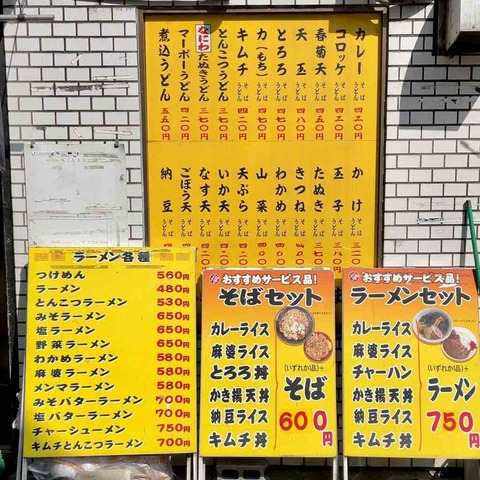 カレー そば うどん 四二〇
コロッケ そば うどん 四二〇
春菊天 そば うどん
天玉 そば うどん 四八〇
とろろ そば うどん
力(もち) そば うどん
キムチ そば うどん 四二〇
とんこつうどん 三七〇
なにわ たぬきうどん 三七〇
マーボーうどん 四二〇
煮込うどん 五五〇
かけ そば うどん 三二〇
玉子 そば うどん
たぬき そば うどん 三七〇
きつね そば うどん
わかめ そば うどん
山菜 そば うどん
天ぷら そば うどん
いか天 そば うどん
なす天 そば うどん
ごぼう天 そば うどん
納豆 そば うどん
ラーメン各種
つけめん 560円
ラーメン 480円
とんこつラーメン 530円
みそラーメン 650円
塩ラーメン 650円
野菜ラーメン 650円
わかめラーメン 580円
麻婆ラーメン 580円
メンマラーメン 580円
みそバターラーメン 700円
塩バターラーメン 700円
チャーシューメン 750円
キムチとんこつラーメン 700円
おすすめサービス品!
そばセット
カレーライス
麻婆ライス
とろろ丼
かき揚天丼
納豆ライス
キムチ丼
(いずれか一品)+
そば
600円
おすすめサービス品!
ラーメンセット
カレーライス
麻婆ライス
チャーハン
かき揚天丼
納豆ライス
キムチ丼
(いずれか一品)+
ラーメン
750円